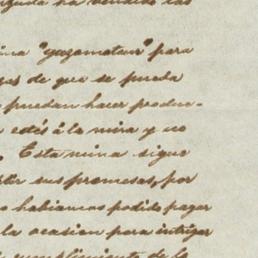 ha vendido las
mina "guzamateur" para
de que se pueda
puedan hacer produc-
estés á la mira y no
Esta mina sigue
sus promesas, por
habiamos podido pagar
la ocasion para intrigar
cumplimiento de lo